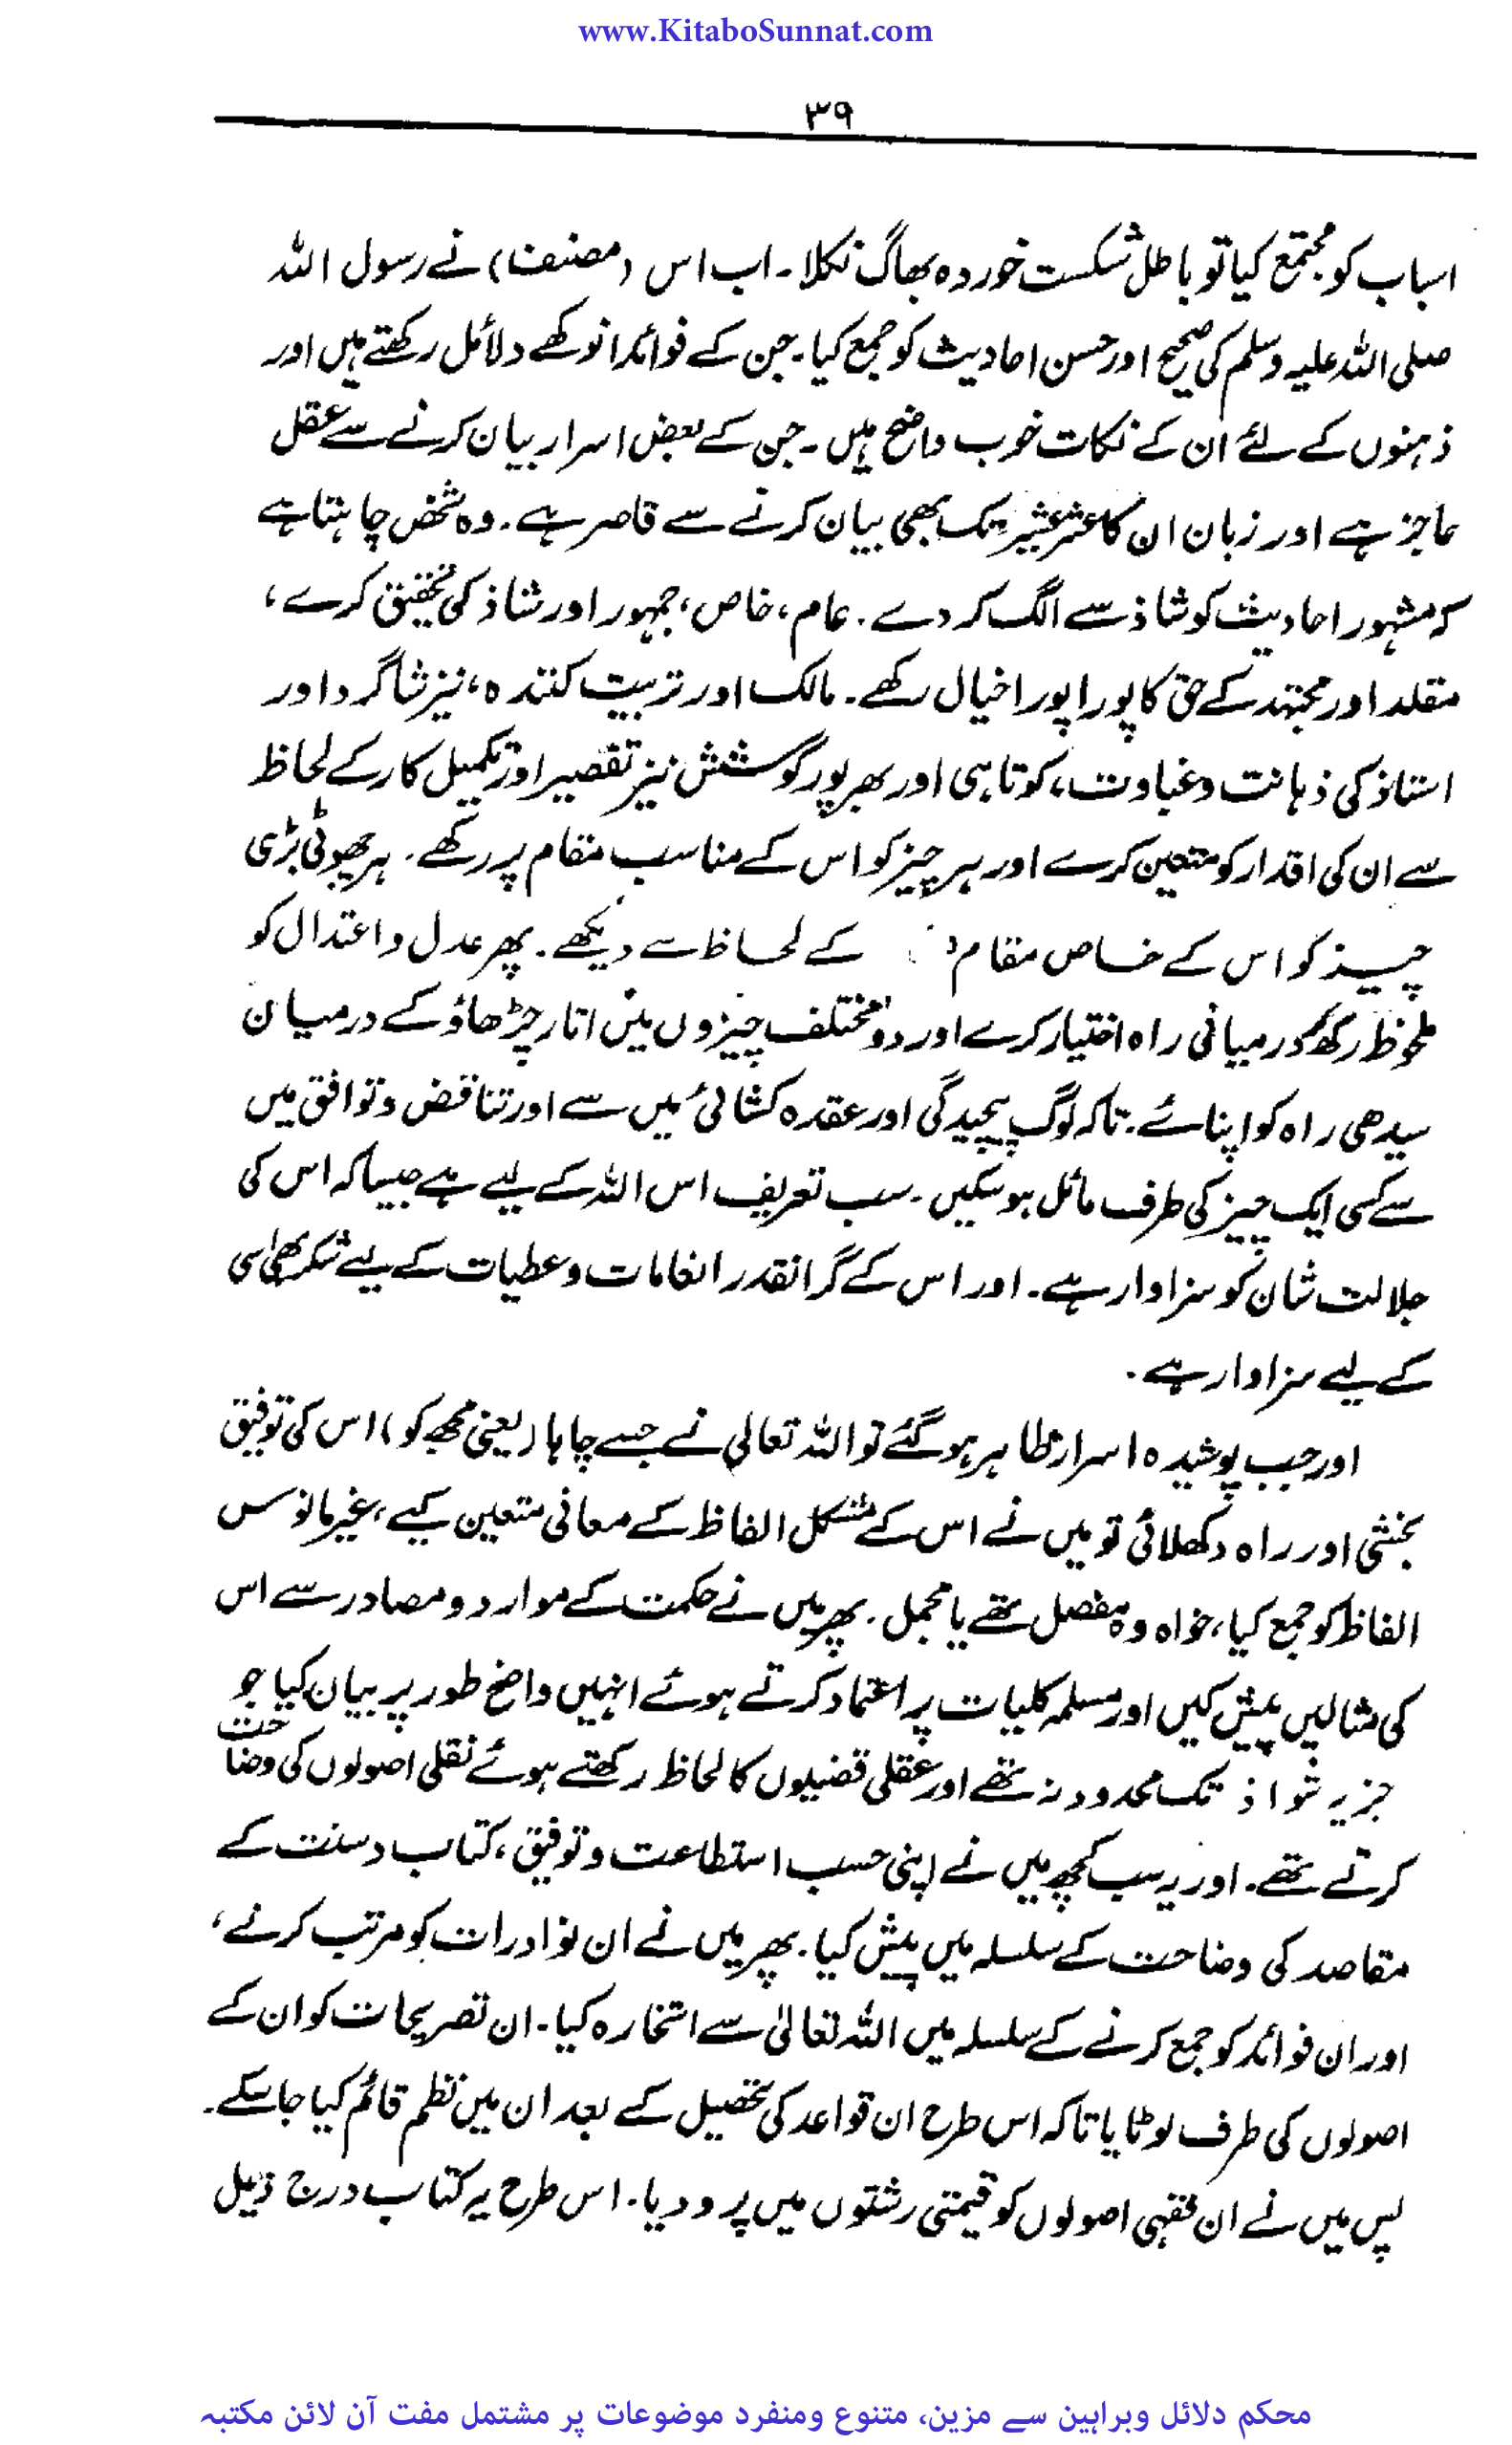 www.KitaboSunnat.com
۳۹
اسباب کو مجتمع کیا تو باطل شکست خوردہ بھاگ نکلا۔ اب اس (مصنف) نے رسول اللہ
صلی اللہ علیہ وسلم کی صحیح اور حسن احادیث کو جمع کیا۔ جن کے فوائد انوکھے دلائل رکھتے ہیں اور
ذہنوں کے لئے ان کے نکات خوب واضح ہیں۔ جن کے بعض اسرار بیان کرنے سے عقل
عاجز ہے اور زبان ان کا عشر عشیر تک بھی بیان کرنے سے قاصر ہے۔ وہ شخص چاہتا ہے
کہ مشہور احادیث کو شاذ سے الگ کر دے۔ عام، خاص، جمہور اور شاذ کی تحقیق کرے،
مقلد اور مجتہد کے حق کا پورا پورا خیال رکھے۔ مالک اور تربیت کنندہ، نیز شاگرد اور
استاذ کی ذہانت و غباوت، کوتاہی اور بھرپور کوشش نیز تقصیر اور تکمیل کار کے لحاظ
سے ان کی اقدار کو متعین کرے اور ہر چیز کو اس کے مناسب مقام پر رکھے۔ ہر چھوٹی بڑی
چیز کو اس کے خاص مقام کے لحاظ سے دیکھے۔ پھر عدل و اعتدال کو
ملحوظ رکھ کر درمیانی راہ اختیار کرے اور دو مختلف چیزوں میں اتار چڑھاؤ کے درمیان
سیدھی راہ کو اپنائے۔ تاکہ لوگ پیچیدگی اور عقدہ کشائی میں سے اور تناقض و توافق میں
سے کسی ایک چیز کی طرف مائل ہو سکیں۔ سب تعریف اس اللہ کے لیے ہے جیسا کہ اس کی
جلالت شان کو سزاوار ہے۔ اور اس کے گرانقدر انعامات و عطیات کے لیے شکر بھی اسی
کے لیے سزاوار ہے۔
اور جب پوشیدہ اسرار ظاہر ہو گئے تو اللہ تعالیٰ نے جسے چاہا (یعنی مجھ کو) اس کی توفیق
بخشی اور راہ دکھلائی تو میں نے اس کے مشکل الفاظ کے معانی متعین کیے، غیر مانوس
الفاظ کو جمع کیا، خواہ وہ مفصل تھے یا مجمل۔ پھر میں نے حکمت کے موارد و مصادر سے اس
کی مثالیں پیش کیں اور مسلمہ کلیات پر اعتماد کرتے ہوئے انہیں واضح طور پر بیان کیا جو
جزیہ شواذ تک محدود نہ تھے اور عقلی قضیلوں کا لحاظ رکھتے ہوئے نقلی اصولوں کی وضاحت
کرتے تھے۔ اور یہ سب کچھ میں نے اپنی حسب استطاعت و توفیق، کتاب و سنت کے
مقاصد کی وضاحت کے سلسلہ میں پیش کیا۔ پھر میں نے ان نوادرات کو مرتب کرنے،
اور ان فوائد کو جمع کرنے کے سلسلہ میں اللہ تعالیٰ سے استخارہ کیا۔ ان تصریحات کو ان کے
اصولوں کی طرف لوٹایا تاکہ اس طرح ان قواعد کی تحصیل کے بعد ان میں نظم قائم کیا جا سکے۔
پس میں نے ان فقہی اصولوں کو قیمتی رشتوں میں پرو دیا۔ اس طرح یہ کتاب درج ذیل
محکم دلائل وبراہین سے مزین، متنوع ومنفرد موضوعات پر مشتمل مفت آن لائن مکتبہ